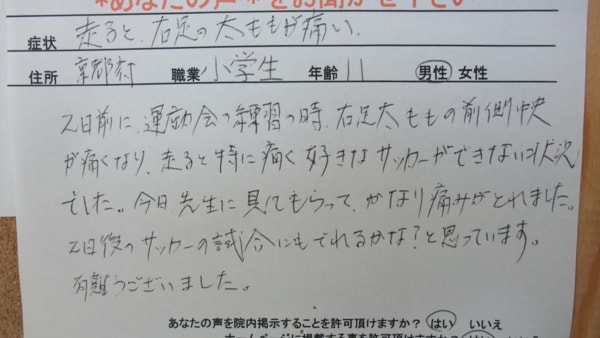 *あなたの声*をお聞かせ下さい
症状 走ると、右足の太ももが痛い.
住所 京都府 職業 小学生 年齢 11 男性 女性
2日前に、運動会の練習の時、右足太ももの前側中央
が痛くなり、走ると特に痛く好きなサッカーができない状況
でした。今日先生に見てもらって、かなり痛みがとれました。
2日後のサッカーの試合にもでれるかな?と思っています。
有難うございました。
あなたの声を院内掲示することを許可頂けますか? はい いいえ
ホームページに掲載する事を許可頂けますか? はい いいえ